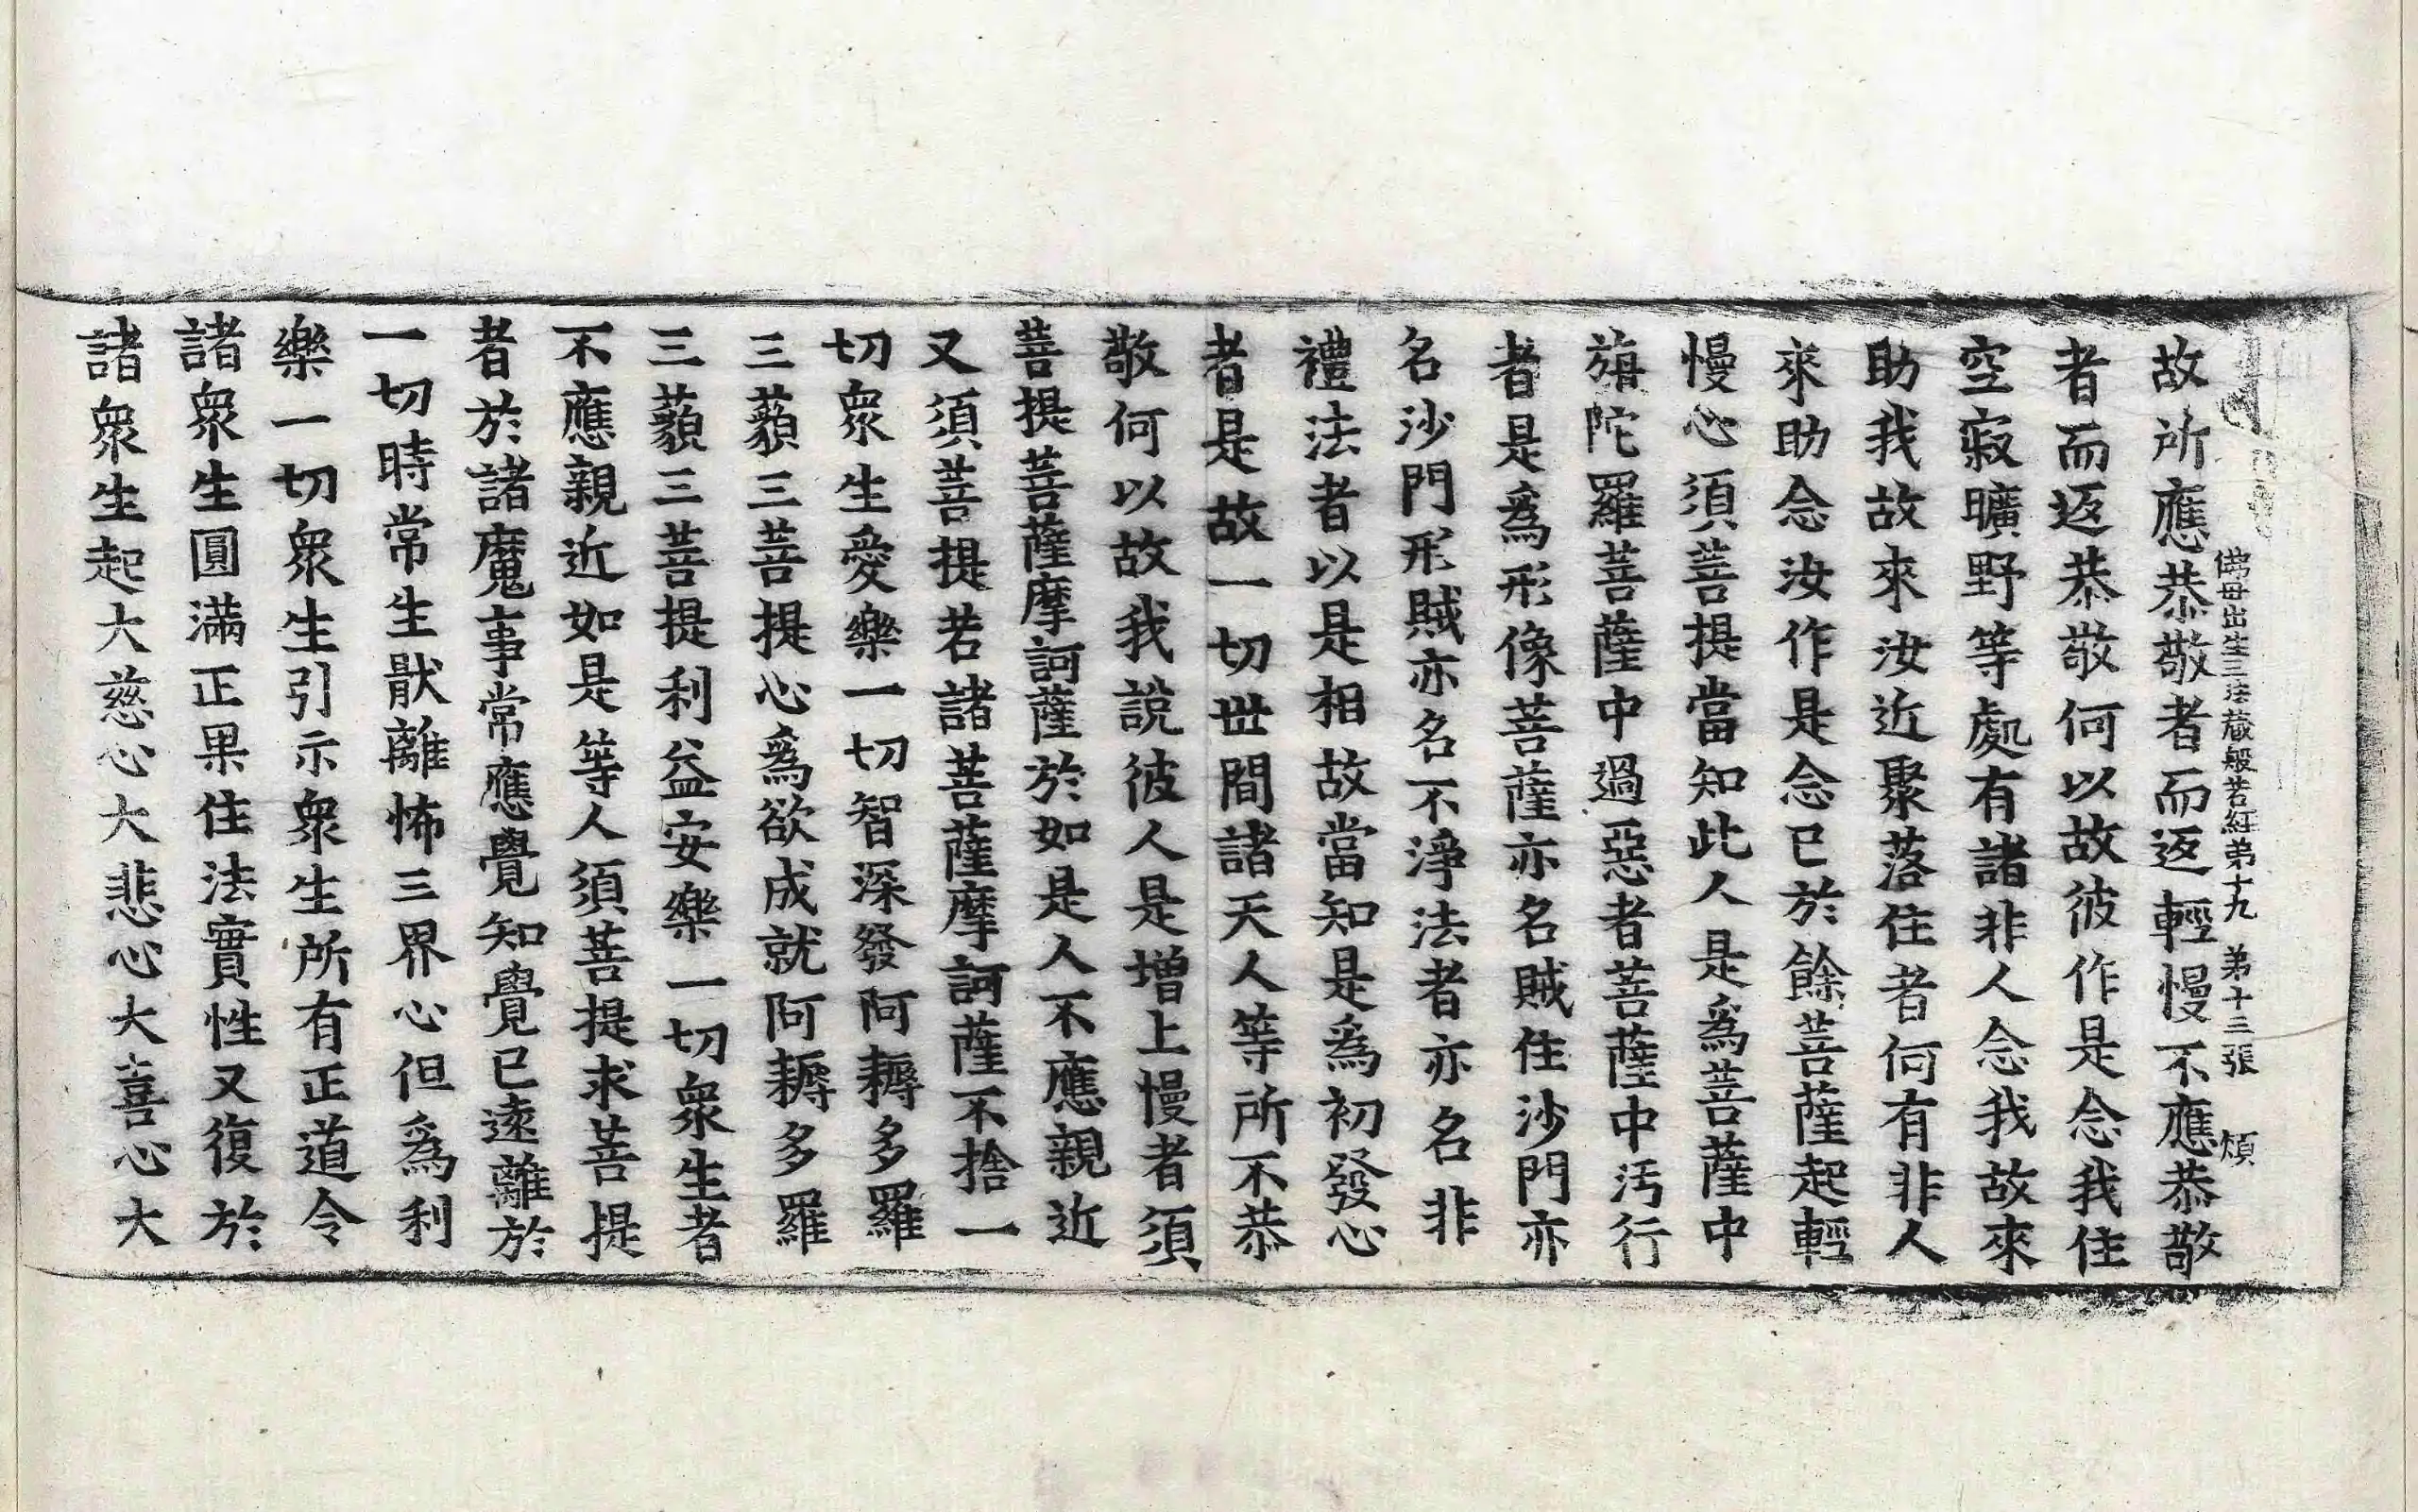 佛母出生三法藏般若經第十九 第十三張 煩
故所應恭敬者而返輕慢不應恭敬
者而返恭敬何以故彼作是念我住
空寂曠野等處有諸非人念我故來
助我故來汝近聚落住者何有非人
來助念汝作是念已於餘菩薩起輕
慢心須菩提當知此人是爲菩薩中
旃陀羅菩薩中過惡者菩薩中汚行
者是爲形像菩薩亦名賊住沙門亦
名沙門形賊亦名不淨法者亦名非
禮法者以是相故當知是爲初發心
者是故一切世間諸天人等所不恭
敬何以故我說彼人是增上慢者須
菩提菩薩摩訶薩於如是人不應親近
又須菩提若諸菩薩摩訶薩不捨一
切衆生愛樂一切智深發阿耨多羅
三藐三菩提心爲欲成就阿耨多羅
三藐三菩提利益安樂一切衆生者
不應親近如是等人須菩提求菩提
者於諸魔事常應覺知覺已遠離於
一切時常生猒離怖三界心但爲利
樂一切衆生引示衆生所有正道令
諸衆生圓滿正果住法實性又復於
諸衆生起大慈心大悲心大喜心大